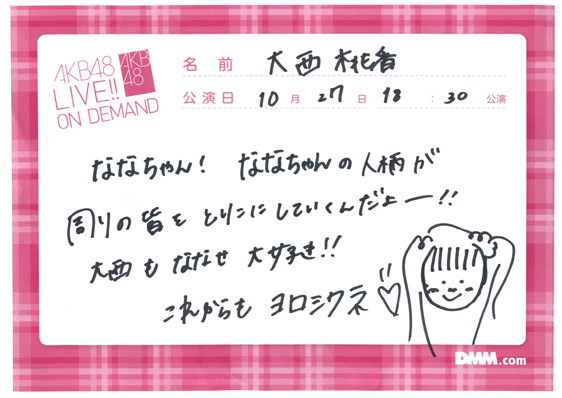 AKB48
LIVE!!
ON DEMAND
AKB
48
名前 大西桃香
公演日 10月27日 18:30公演
ななちゃん! ななちゃんの人柄が
周りの皆をとりこにしていくんだよー!!
大西もななせ大好き!!
これからもヨロシクネ
DMM.com